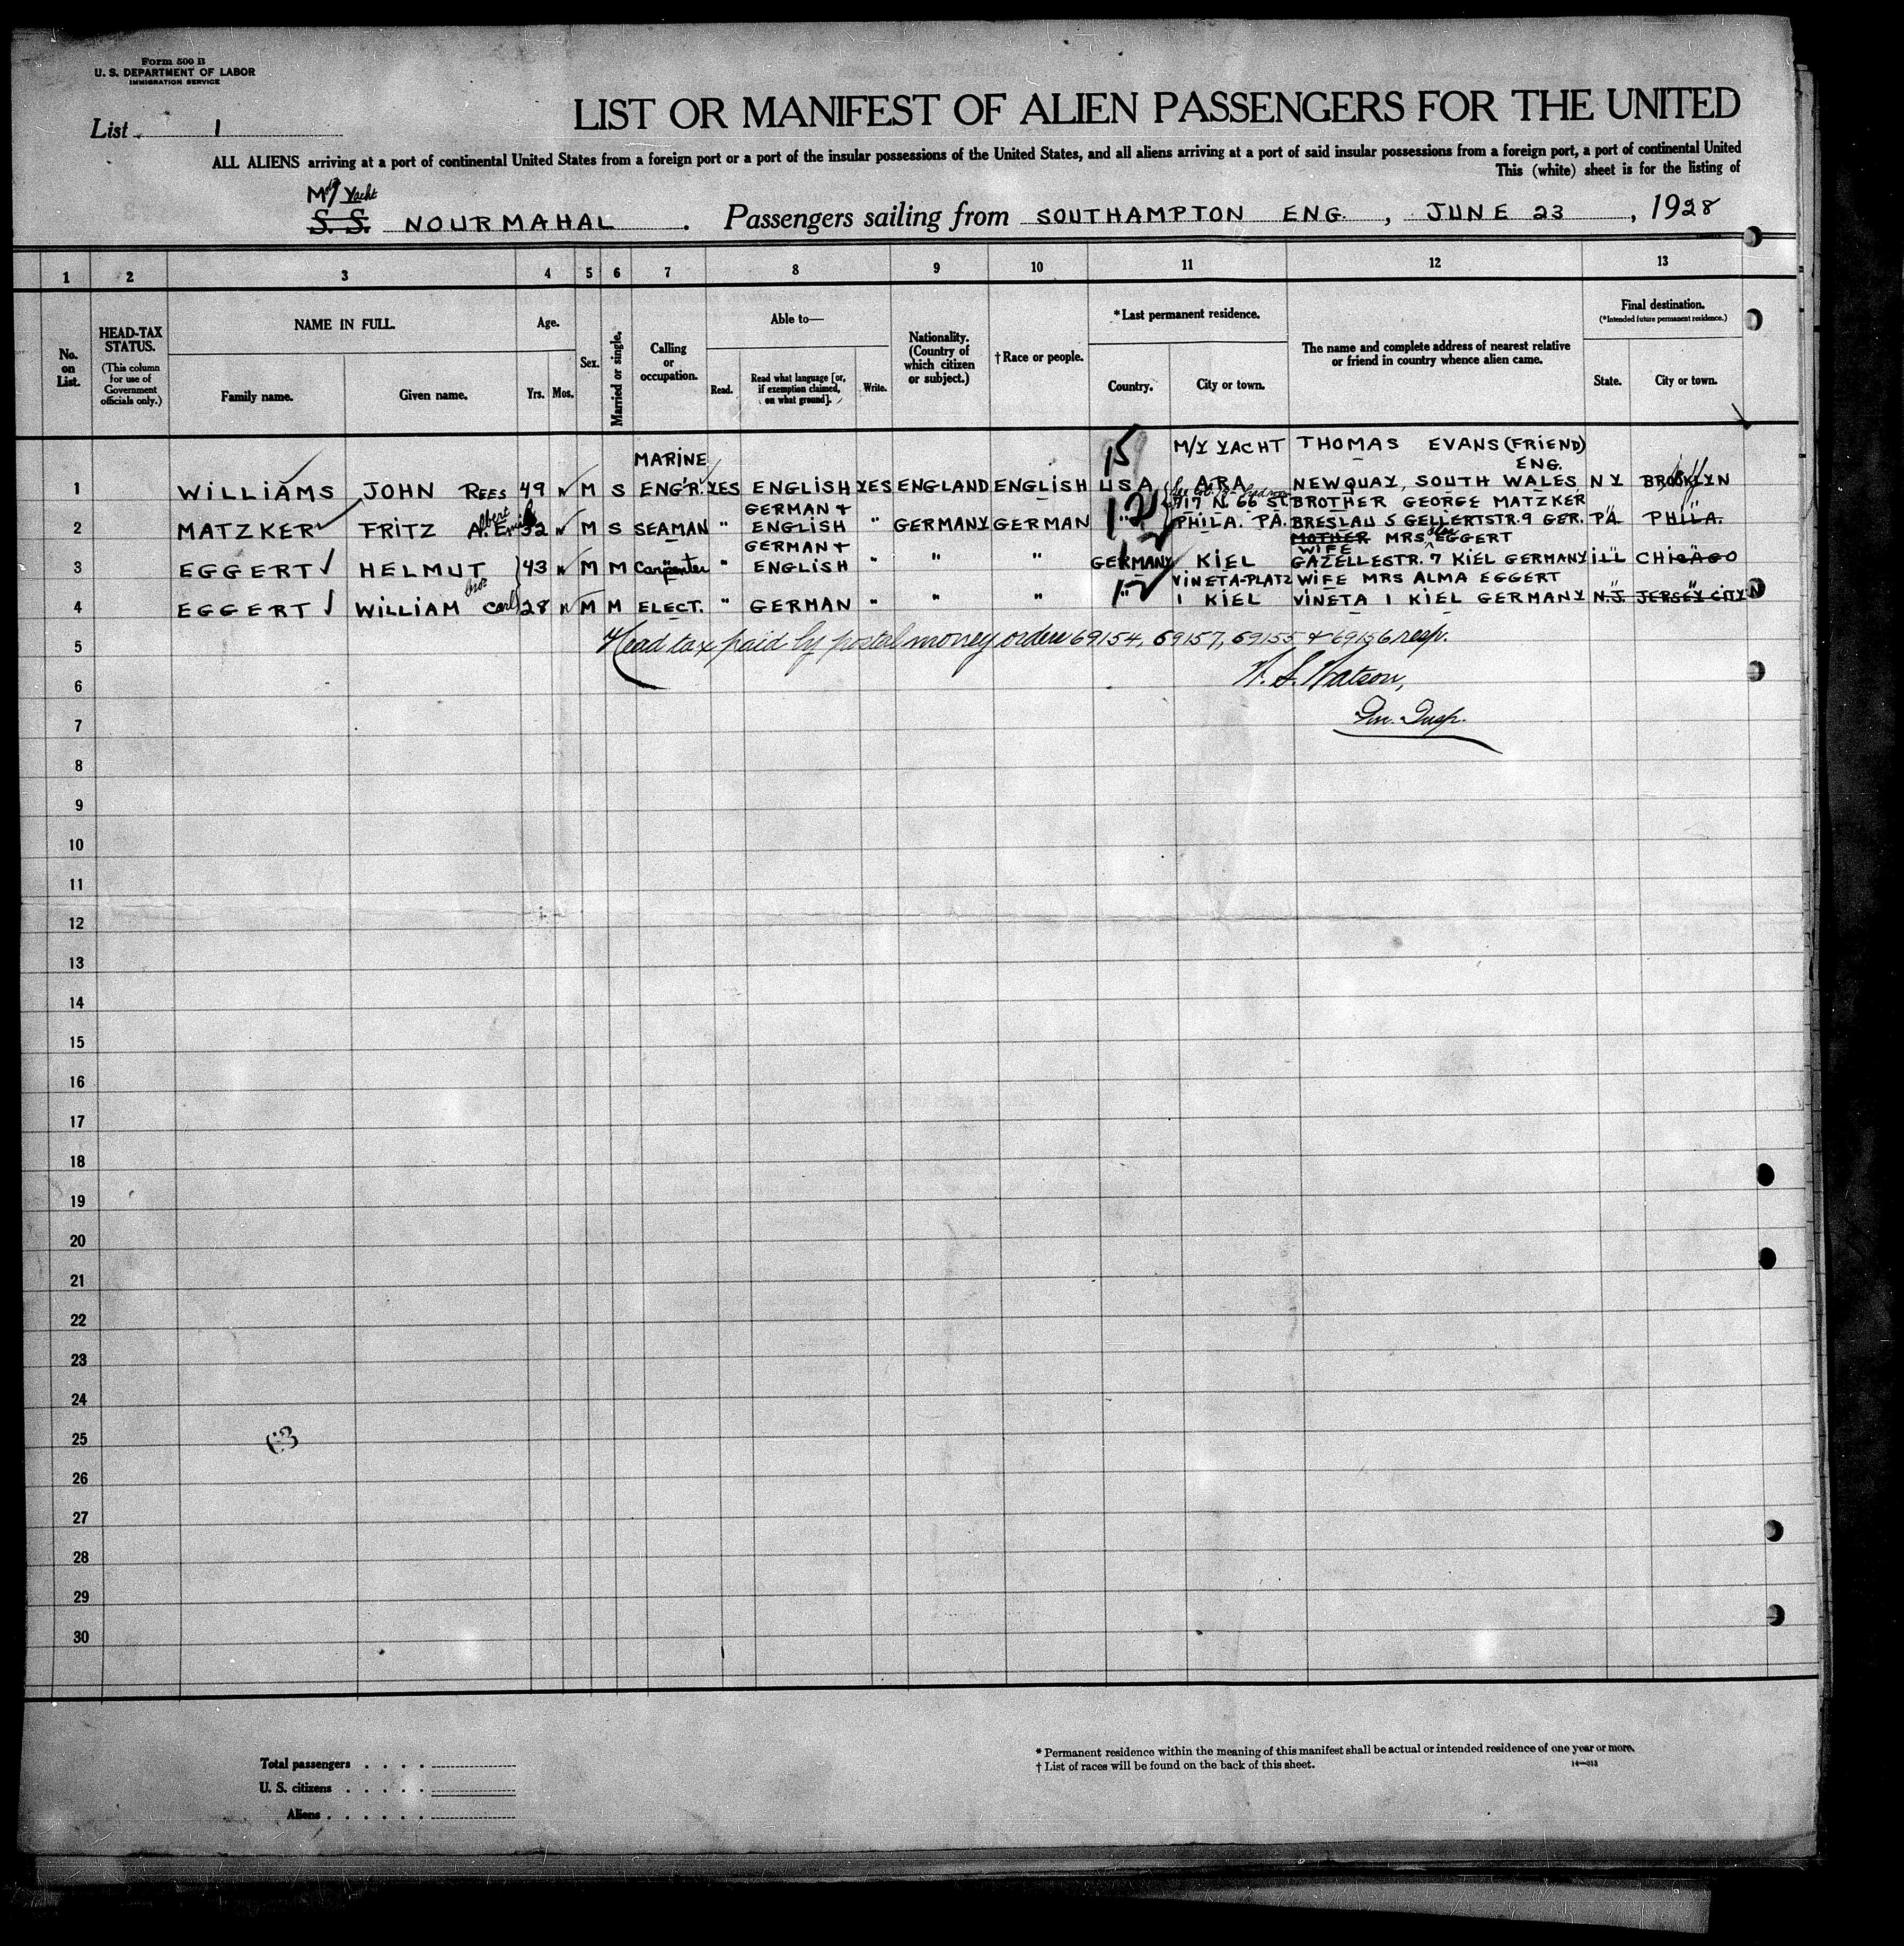 Form 500 B
U. S. DEPARTMENT OF LABOR
IMMIGRATION SERVICE
List 1
LIST OR MANIFEST OF ALIEN PASSENGERS FOR THE UNITED
ALL ALIENS arriving at a port of continental United States from a foreign port or a port of the insular possessions of the United States, and all aliens arriving at a port of said insular possessions from a foreign port, a port of continental United
This (white) sheet is for the listing of
Yacht
S. S. NOURMAHAL. Passengers sailing from SOUTHAMPTON ENG., JUNE 23, 1928
1 2 3 4 5 6 7 8 9 10 11 12 13
No. on List.
HEAD-TAX STATUS.
(This column for use of Government officials only.)
NAME IN FULL.
Family name. Given name.
Age.
Yrs. Mos.
Sex.
Married or single.
Calling or occupation.
Able to—
Read. Read what language [or, if exemption claimed, on what ground]. Write.
Nationality. (Country of which citizen or subject.)
†Race or people.
*Last permanent residence.
Country. City or town.
The name and complete address of nearest relative or friend in country whence alien came.
Final destination.
(*Intended future permanent residence.)
State. City or town.
MARINE M/Y YACHT THOMAS EVANS (FRIEND)
ENG.
1 WILLIAMS JOHN REES 49 M S ENG'R. YES ENGLISH YES ENGLAND ENGLISH USA ARA NEWQUAY, SOUTH WALES NY BROOKLYN
Albert GERMAN + 717 N. 66 ST. BROTHER GEORGE MATZKER
2 MATZKER FRITZ A. Emil 32 M S SEAMAN " ENGLISH " GERMANY GERMAN PHILA. PA. BRESLAU S GELLERTSTR. 9 GER. PA PHILA.
GERMAN + MOTHER MRS EGGERT
WIFE
3 EGGERT HELMUT 43 M M Carpenter " ENGLISH " " " GERMANY KIEL GAZELLESTR. 7 KIEL GERMANY ILL CHICAGO
VINETA-PLATZ WIFE MRS ALMA EGGERT
4 EGGERT WILLIAM Carl 28 M M ELECT. " GERMAN " " " " 1 KIEL VINETA 1 KIEL GERMANY N.J. JERSEY CITY
5 Head tax paid by postal money orders 69154, 69157, 69155 & 69156 resp.
6 W. S. Watson,
7 Im. Insp.
8
9
10
11
12
13
14
15
16
17
18
19
20
21
22
23
24
25
26
27
28
29
30
Total passengers
U. S. citizens
Aliens
* Permanent residence within the meaning of this manifest shall be actual or intended residence of one year or more.
† List of races will be found on the back of this sheet.
14—313